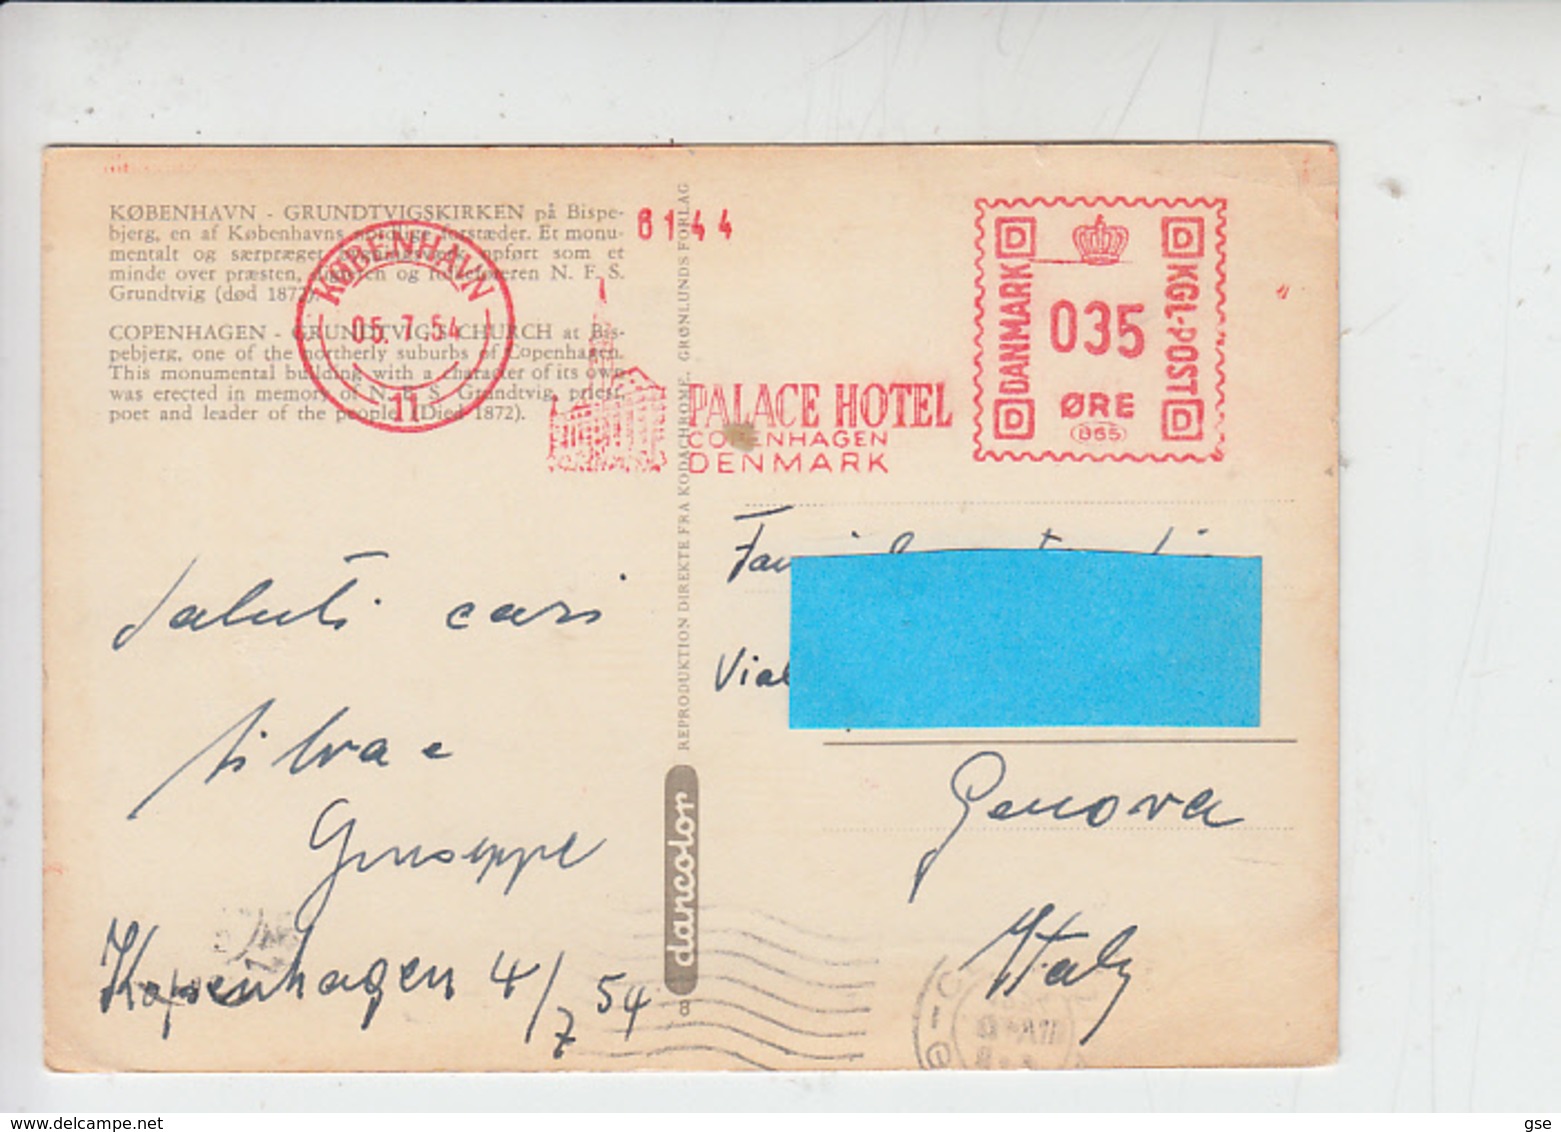 KØBENHAVN - GRUNDTVIGSKIRKEN på Bispe-
bjerg, en af Københavns nordlige forstæder. Et monu-
mentalt og særpræget opført som et
minde over præsten, og folkeføreren N. F. S.
Grundtvig (død 1872).
COPENHAGEN - GRUNDTVIG'S CHURCH at Bis-
pebjerg, one of the northerly suburbs of Copenhagen.
This monumental building with a character of its own
was erected in memory of N. F. S. Grundtvig, priest,
poet and leader of the people (Died 1872).
KØBENHAVN
05. 7.54
11
6144
PALACE HOTEL
COPENHAGEN
DENMARK
D D
DANMARK
KGL·POST
035
ØRE
865
D D
REPRODUKTION DIREKTE FRA KODACHROME. GRØNLUNDS FORLAG
dancolor
8
Saluti cari
Silva e
Giuseppe
Kopenhagen 4/7 54
Genova
Italy
www.delcampe.net
gse